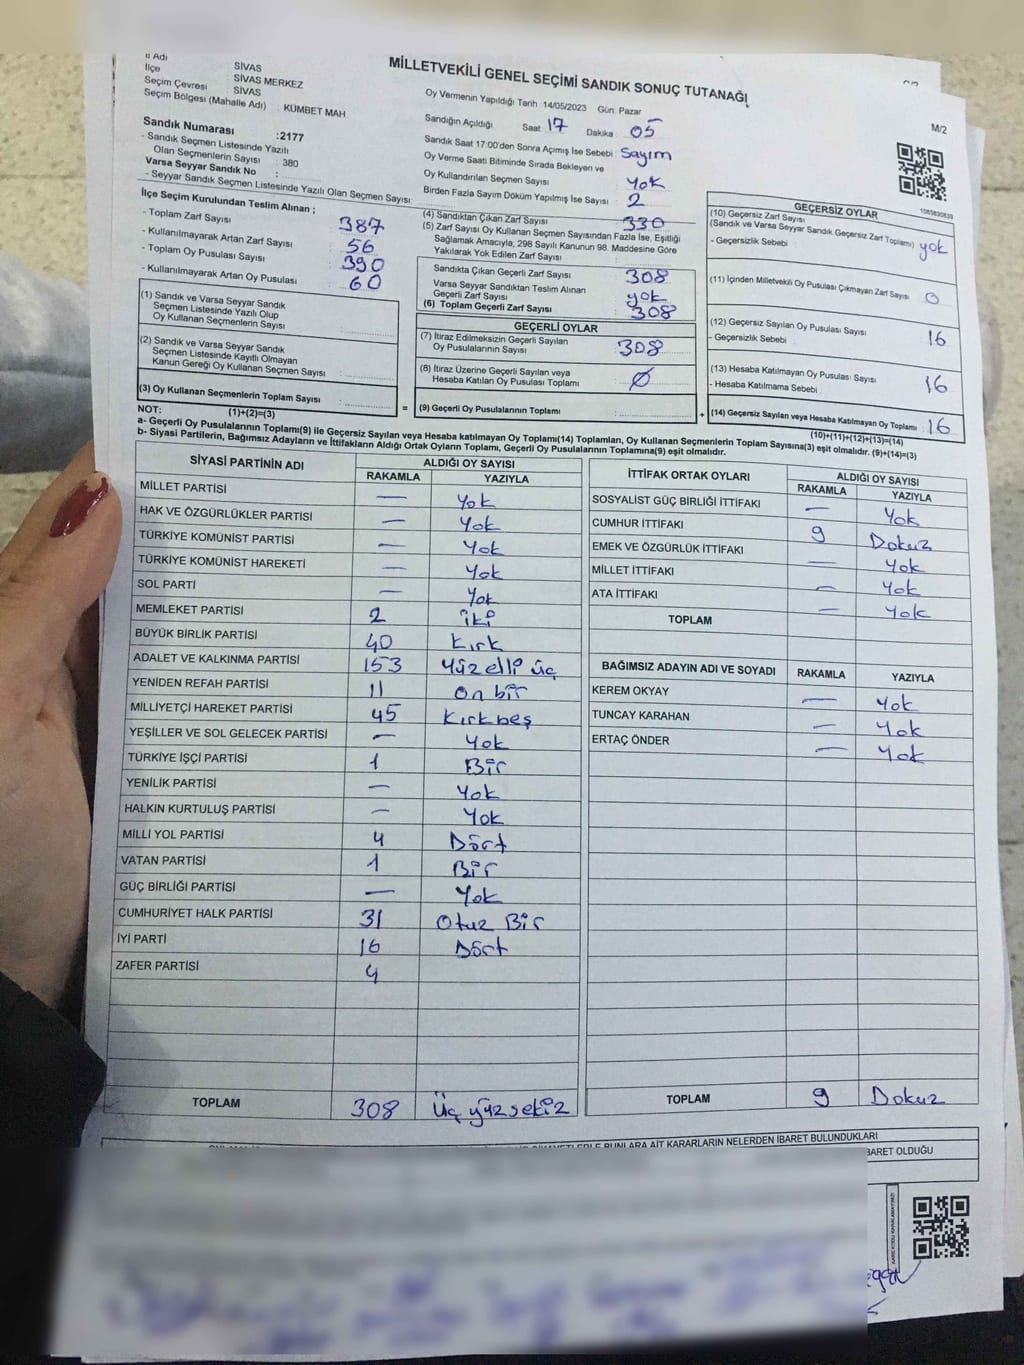 İl Adı
İlçe
Seçim Çevresi
Seçim Bölgesi (Mahalle Adı)
SİVAS
SİVAS MERKEZ
SİVAS
KÜMBET MAH
MİLLETVEKİLİ GENEL SEÇİMİ SANDIK SONUÇ TUTANAĞI
Oy Vermenin Yapıldığı Tarih :14/05/2023 Gün: Pazar
Sandığın Açıldığı Saat: 17 Dakika : 05
Sandık Saat 17:00'den Sonra Açımış İse Sebebi: Sayım
Oy Verme Saati Bitiminde Sırada Bekleyen ve
Oy Kullandırılan Seçmen Sayısı : Yok
Birden Fazla Sayım Döküm Yapılmış İse Sayısı : 2
M/2
Sandık Numarası :2177
- Sandık Seçmen Listesinde Yazılı
Olan Seçmenlerin Sayısı : 380
Varsa Seyyar Sandık No :
- Seyyar Sandık Seçmen Listesinde Yazılı Olan Seçmen Sayısı:
İlçe Seçim Kurulundan Teslim Alınan ;
- Toplam Zarf Sayısı : 387
- Kullanılmayarak Artan Zarf Sayısı : 56
- Toplam Oy Pusulası Sayısı : 390
- Kullanılmayarak Artan Oy Pusulası : 60
(1) Sandık ve Varsa Seyyar Sandık
Seçmen Listesinde Yazılı Olup
Oy Kullanan Seçmenlerin Sayısı :
(2) Sandık ve Varsa Seyyar Sandık
Seçmen Listesinde Kayıtlı Olmayan
Kanun Gereği Oy Kullanan Seçmen Sayısı :
(3) Oy Kullanan Seçmenlerin Toplam Sayısı :
(1)+(2)=(3)
(4) Sandıktan Çıkan Zarf Sayısı : 330
(5) Zarf Sayısı Oy Kullanan Seçmen Sayısından Fazla İse, Eşitliği
Sağlamak Amacıyla, 298 Sayılı Kanunun 98. Maddesine Göre
Yakılarak Yok Edilen Zarf Sayısı :
Sandıkta Çıkan Geçerli Zarf Sayısı : 308
Varsa Seyyar Sandıktan Teslim Alınan
Geçerli Zarf Sayısı : yok
(6) Toplam Geçerli Zarf Sayısı : 308
GEÇERLİ OYLAR
(7) İtiraz Edilmeksizin Geçerli Sayılan
Oy Pusulalarının Sayısı : 308
(8) İtiraz Üzerine Geçerli Sayılan veya
Hesaba Katılan Oy Pusulası Toplamı : Ø
= (9) Geçerli Oy Pusulalarının Toplamı : +
GEÇERSİZ OYLAR
(10) Geçersiz Zarf Sayısı
(Sandık ve Varsa Seyyar Sandık Geçersiz Zarf Toplamı) : yok
- Geçersizlik Sebebi :
(11) İçinden Milletvekili Oy Pusulası Çıkmayan Zarf Sayısı : 0
(12) Geçersiz Sayılan Oy Pusulası Sayısı : 16
- Geçersizlik Sebebi :
(13) Hesaba Katılmayan Oy Pusulası Sayısı : 16
- Hesaba Katılmama Sebebi :
(14) Geçersiz Sayılan veya Hesaba Katılmayan Oy Toplamı : 16
(10)+(11)+(12)+(13)=(14)
NOT:
a- Geçerli Oy Pusulalarının Toplamı(9) ile Geçersiz Sayılan veya Hesaba katılmayan Oy Toplamı(14) Toplamları, Oy Kullanan Seçmenlerin Toplam Sayısına(3) eşit olmalıdır. (9)+(14)=(3)
b- Siyasi Partilerin, Bağımsız Adayların ve İttifakların Aldığı Ortak Oyların Toplamı, Geçerli Oy Pusulalarının Toplamına(9) eşit olmalıdır.
SİYASİ PARTİNİN ADI ALDIĞI OY SAYISI
RAKAMLA YAZIYLA
MİLLET PARTİSİ — Yok
HAK VE ÖZGÜRLÜKLER PARTİSİ — Yok
TÜRKİYE KOMÜNİST PARTİSİ — Yok
TÜRKİYE KOMÜNİST HAREKETİ — Yok
SOL PARTİ — Yok
MEMLEKET PARTİSİ 2 iki
BÜYÜK BİRLİK PARTİSİ 40 Kırk
ADALET VE KALKINMA PARTİSİ 153 Yüz elli üç
YENİDEN REFAH PARTİSİ 11 On bir
MİLLİYETÇİ HAREKET PARTİSİ 45 Kırk beş
YEŞİLLER VE SOL GELECEK PARTİSİ — Yok
TÜRKİYE İŞÇİ PARTİSİ 1 Bir
YENİLİK PARTİSİ — Yok
HALKIN KURTULUŞ PARTİSİ — Yok
MİLLİ YOL PARTİSİ 4 Dört
VATAN PARTİSİ 1 Bir
GÜÇ BİRLİĞİ PARTİSİ — Yok
CUMHURİYET HALK PARTİSİ 31 Otuz Bir
İYİ PARTİ 16 Dört
ZAFER PARTİSİ 4
TOPLAM 308 Üç yüz sekiz
İTTİFAK ORTAK OYLARI ALDIĞI OY SAYISI
RAKAMLA YAZIYLA
SOSYALİST GÜÇ BİRLİĞİ İTTİFAKI — Yok
CUMHUR İTTİFAKI 9 Dokuz
EMEK VE ÖZGÜRLÜK İTTİFAKI — Yok
MİLLET İTTİFAKI — Yok
ATA İTTİFAKI — Yok
TOPLAM
BAĞIMSIZ ADAYIN ADI VE SOYADI RAKAMLA YAZIYLA
KEREM OKYAY — Yok
TUNCAY KARAHAN — Yok
ERTAÇ ÖNDER — Yok
TOPLAM 9 Dokuz
BUNLARA AİT KARARLARIN NELERDEN İBARET BULUNDUKLARI
BARET OLDUĞU